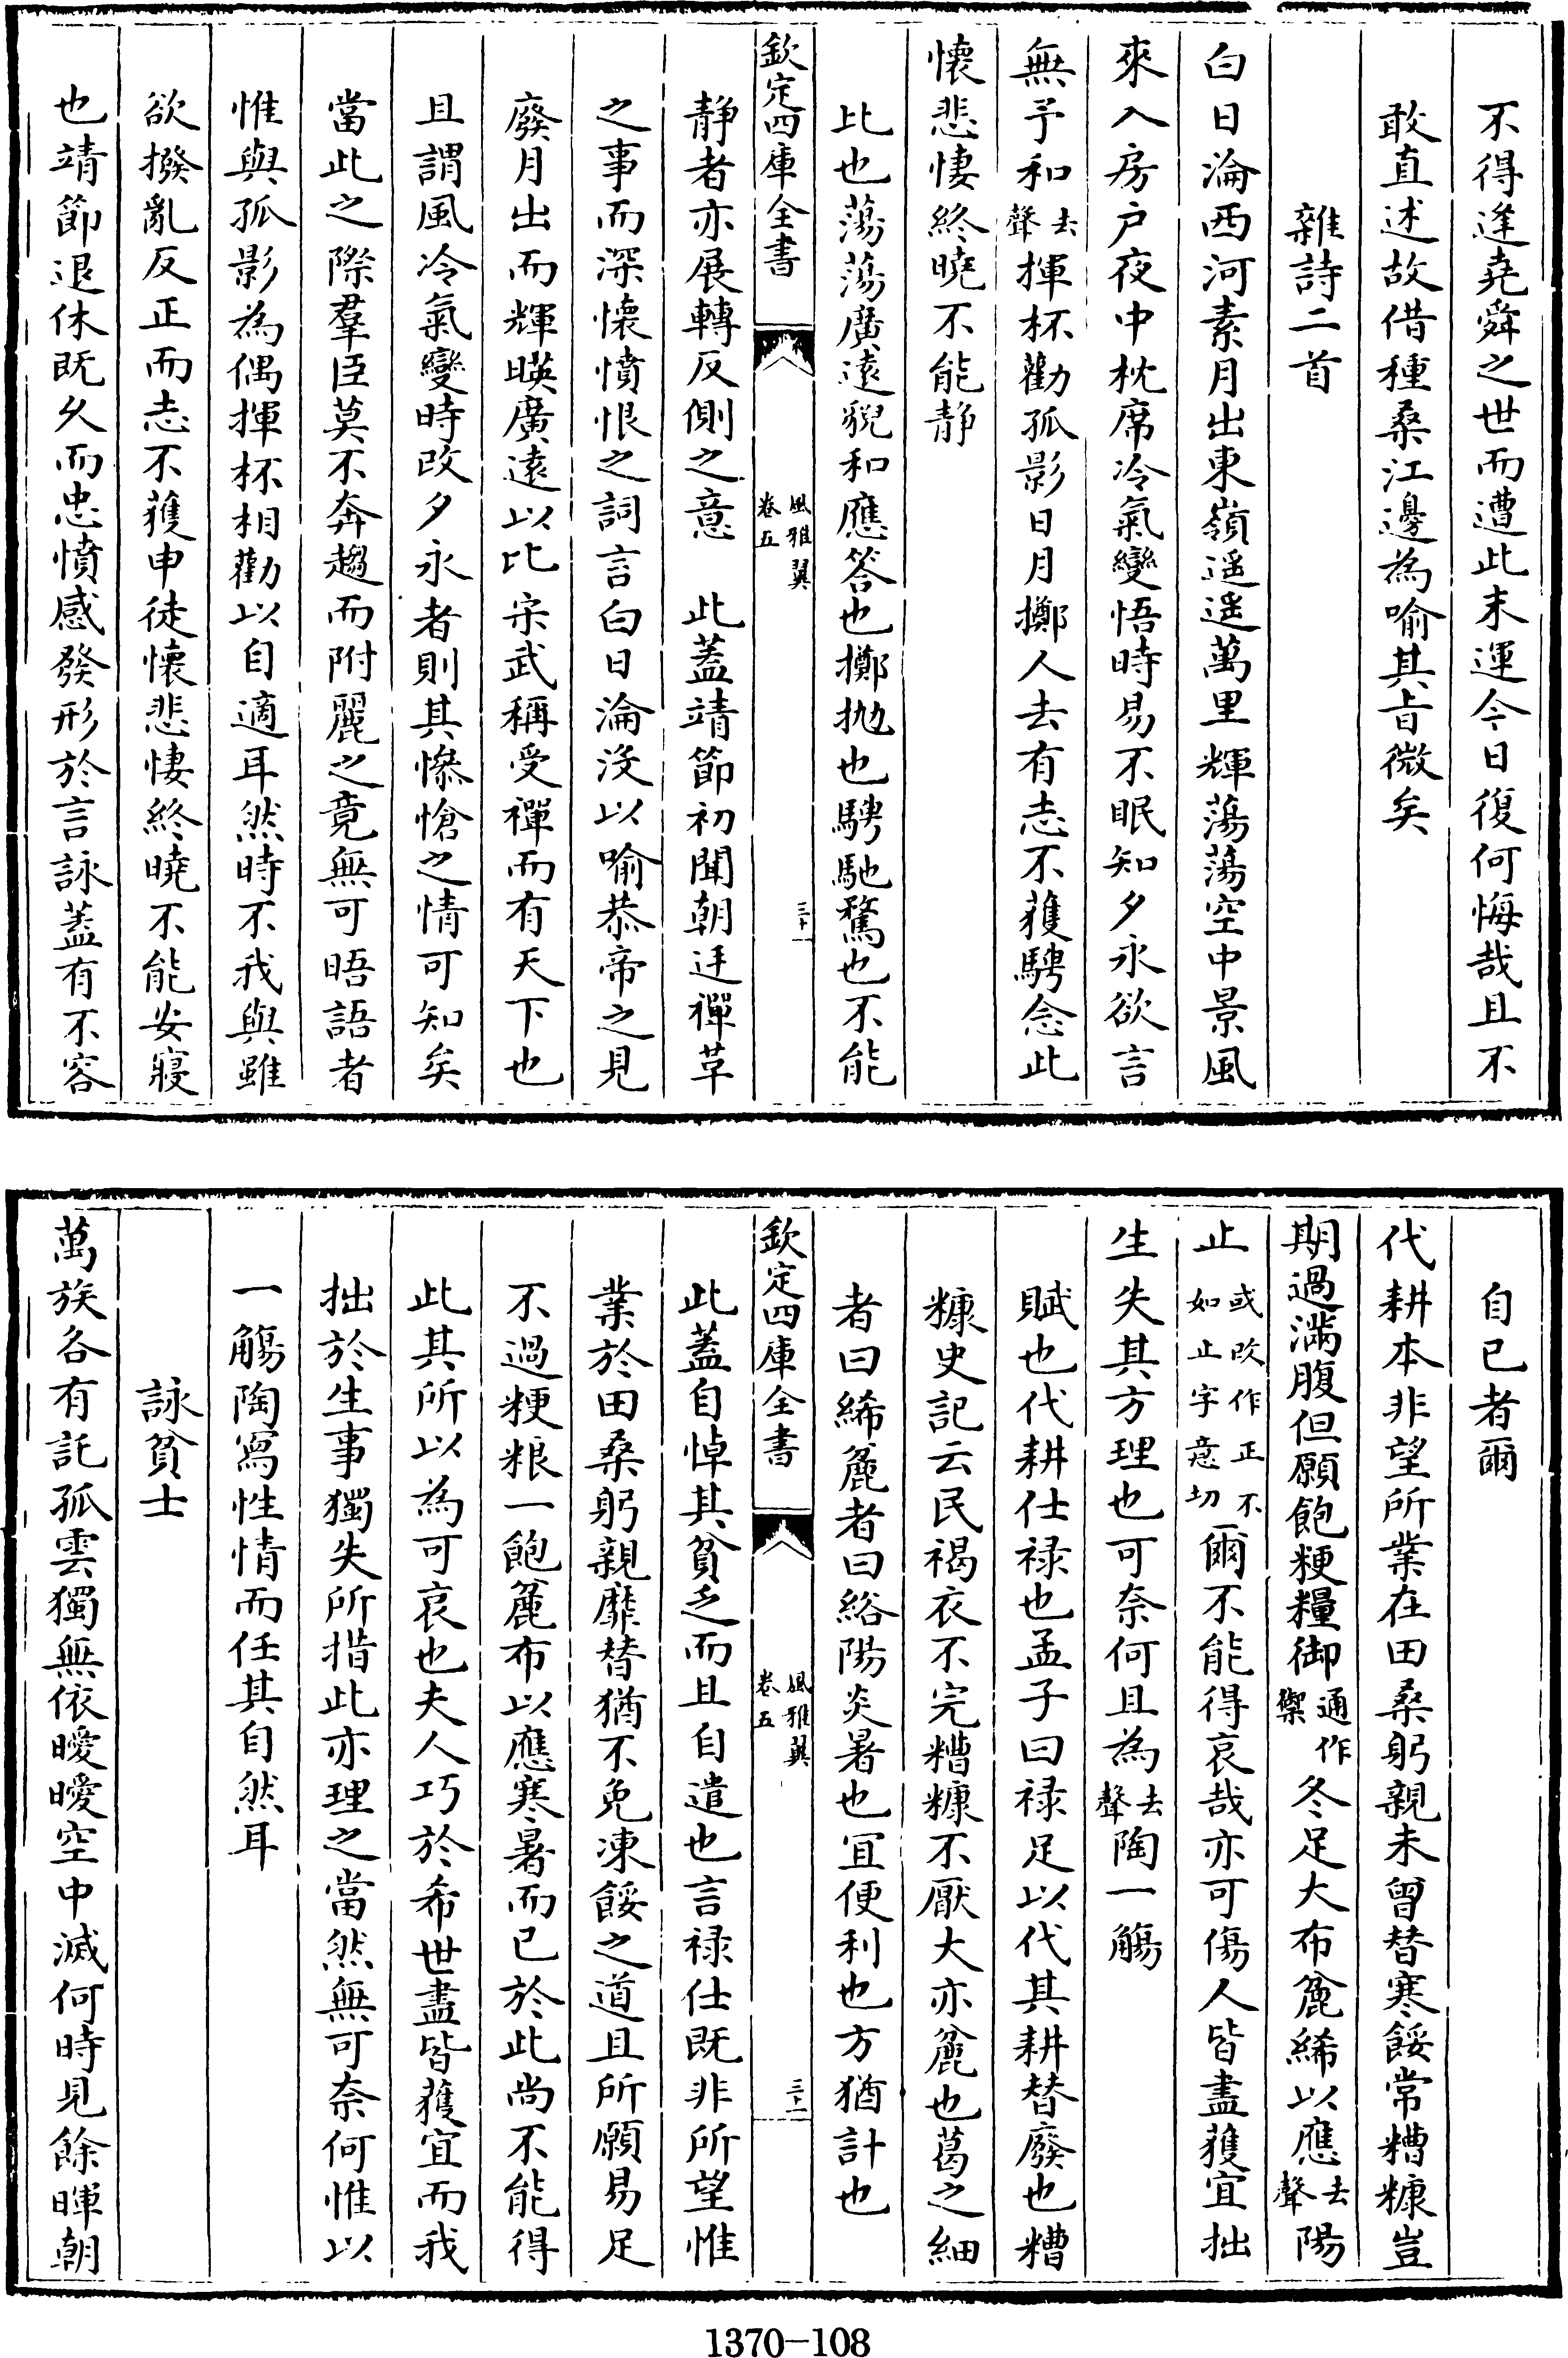 不得逢堯舜之世而遭此末運今日復何悔哉且不
敢直述故借種桑江邊為喻其㫖微矣
雜詩二首
白日淪西河素月出東嶺遥遥萬里輝蕩蕩空中景風
來入房戸夜中枕席冷氣變悟時易不眠知夕永欲言
無予和去聲揮杯勸孤影日月擲人去有志不獲騁念此
懷悲悽終曉不能静
比也蕩蕩廣逺貌和應答也擲抛也騁馳騖也不能
静者亦展轉反側之意　此蓋靖節初聞朝廷禪革
之事而深懷憤恨之詞言白日淪没以喻恭帝之見
廢月出而輝暎廣逺以比宋武稱受禪而有天下也
且謂風冷氣變時改夕永者則其慘愴之情可知矣
當此之際羣臣莫不奔趨而附麗之竟無可晤語者
惟與孤影為偶揮杯相勸以自適耳然時不我與雖
欲撥亂反正而志不獲申徒懷悲悽終曉不能安寢
也靖節退休既久而忠憤感發形於言詠蓋有不容
欽定四庫全書
風雅翼
卷五
三十一
自已者爾
代耕本非望所業在田桑躬親未曾替寒餒常糟糠豈
期過滿腹但願飽粳糧御通作禦冬足大布麄絺以應去聲陽
止或改作正不如止字意切爾不能得哀哉亦可傷人皆盡獲宜拙
生失其方理也可奈何且為去聲陶一觴
賦也代耕仕禄也孟子曰禄足以代其耕替廢也糟
糠史記云民褐衣不完糟糠不厭大亦麄也葛之細
者曰絺麄者曰綌陽炎暑也宜便利也方猶計也
此蓋自悼其貧乏而且自遣也言禄仕既非所望惟
業於田桑躬親靡替猶不免凍餒之道且所願易足
不過粳粮一飽麄布以應寒暑而已於此尚不能得
此其所以為可哀也夫人巧於希世盡皆獲宜而我
拙於生事獨失所措此亦理之當然無可奈何惟以
一觴陶寫性情而任其自然耳
詠貧士
萬族各有託孤雲獨無依曖曖空中滅何時見餘暉朝
欽定四庫全書
風雅翼
卷五
三十二
1370-108